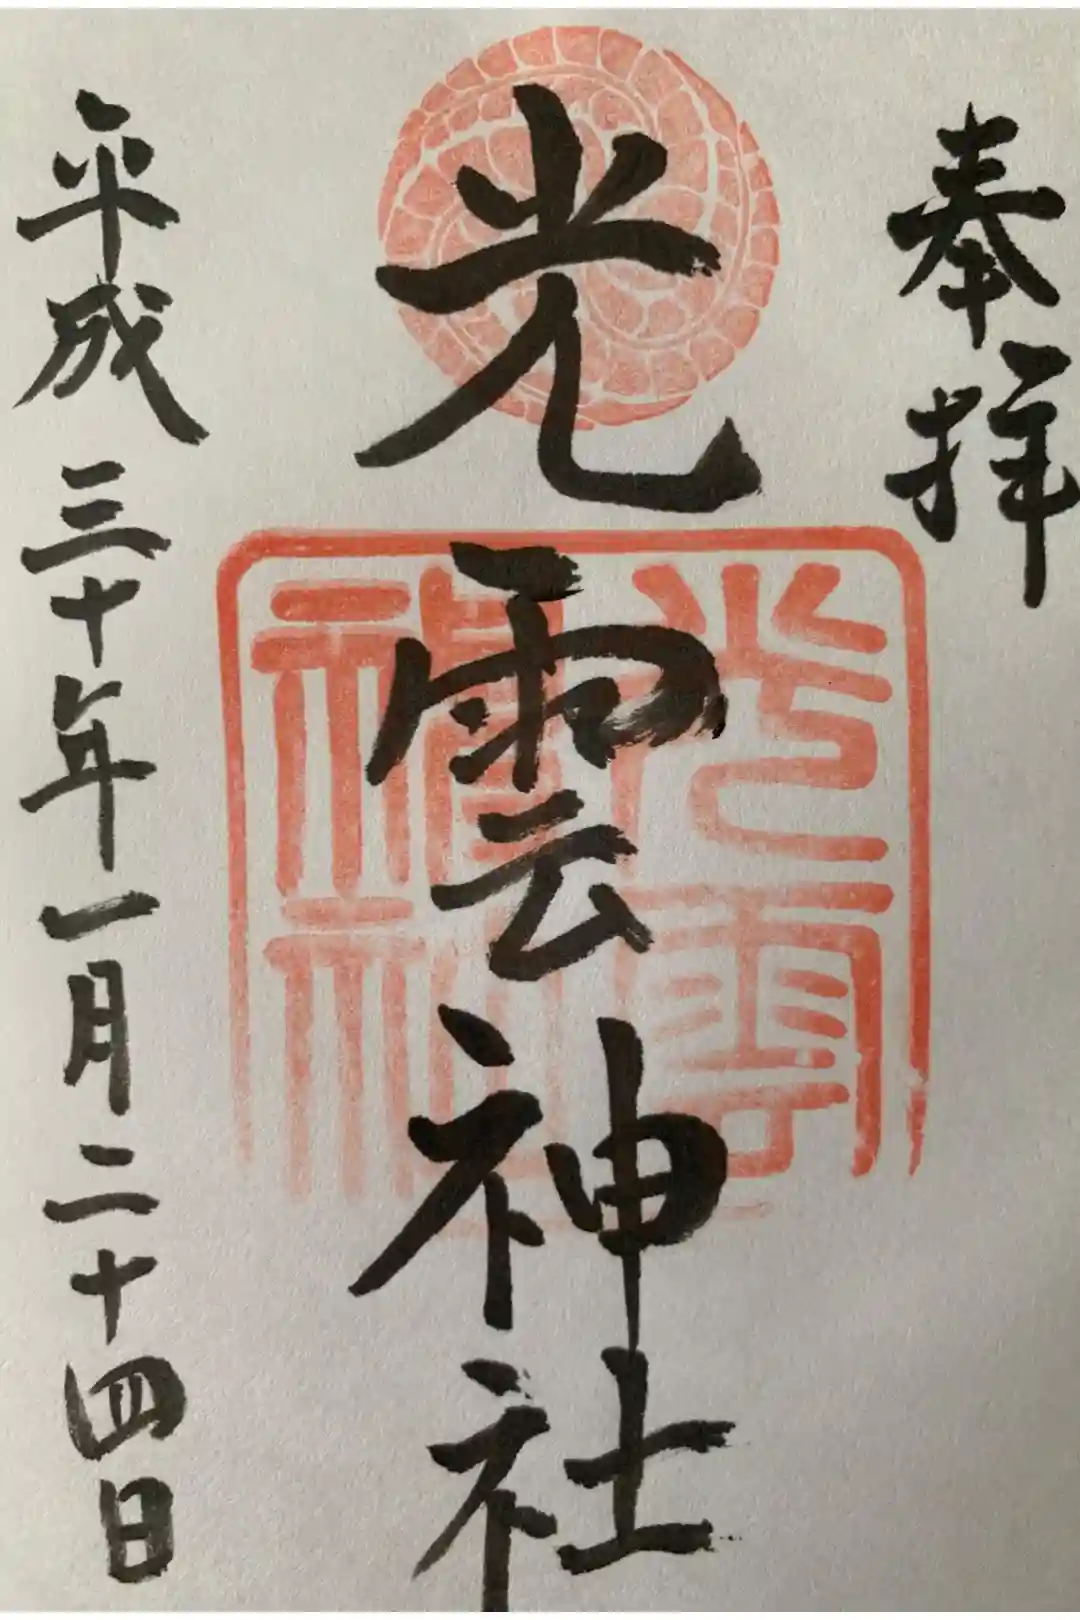 奉拝
光雲神社
光雲
神社
平成三十年一月二十四日